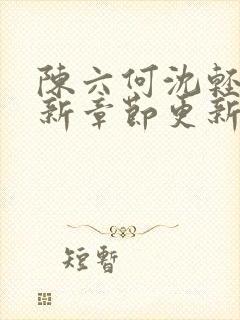 陳六何沈輕
新章節更新
短暫